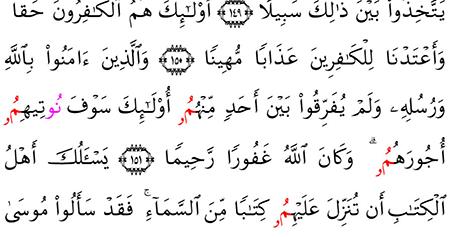 يَتَّخِذُوا۟ بَيْنَ ذَٰلِكَ سَبِيلًا ﴿١٤٩﴾ أُو۟لَٰٓئِكَ هُمُ ٱلْكَٰفِرُونَ حَقًّا
وَأَعْتَدْنَا لِلْكَٰفِرِينَ عَذَابًا مُّهِينًا ﴿١٥٠﴾ وَٱلَّذِينَ ءَامَنُوا۟ بِٱللَّهِ
وَرُسُلِهِۦ وَلَمْ يُفَرِّقُوا۟ بَيْنَ أَحَدٍ مِّنْهُمُۥ أُو۟لَٰٓئِكَ سَوْفَ نُوتِيهِمُۥ
أُجُورَهُمُۥ ۗ وَكَانَ ٱللَّهُ غَفُورًا رَّحِيمًا ﴿١٥١﴾ يَسْـَٔلُكَ أَهْلُ
ٱلْكِتَٰبِ أَن تُنَزِّلَ عَلَيْهِمُۥ كِتَٰبًا مِّنَ ٱلسَّمَآءِ ۚ فَقَدْ سَأَلُوا۟ مُوسَىٰ